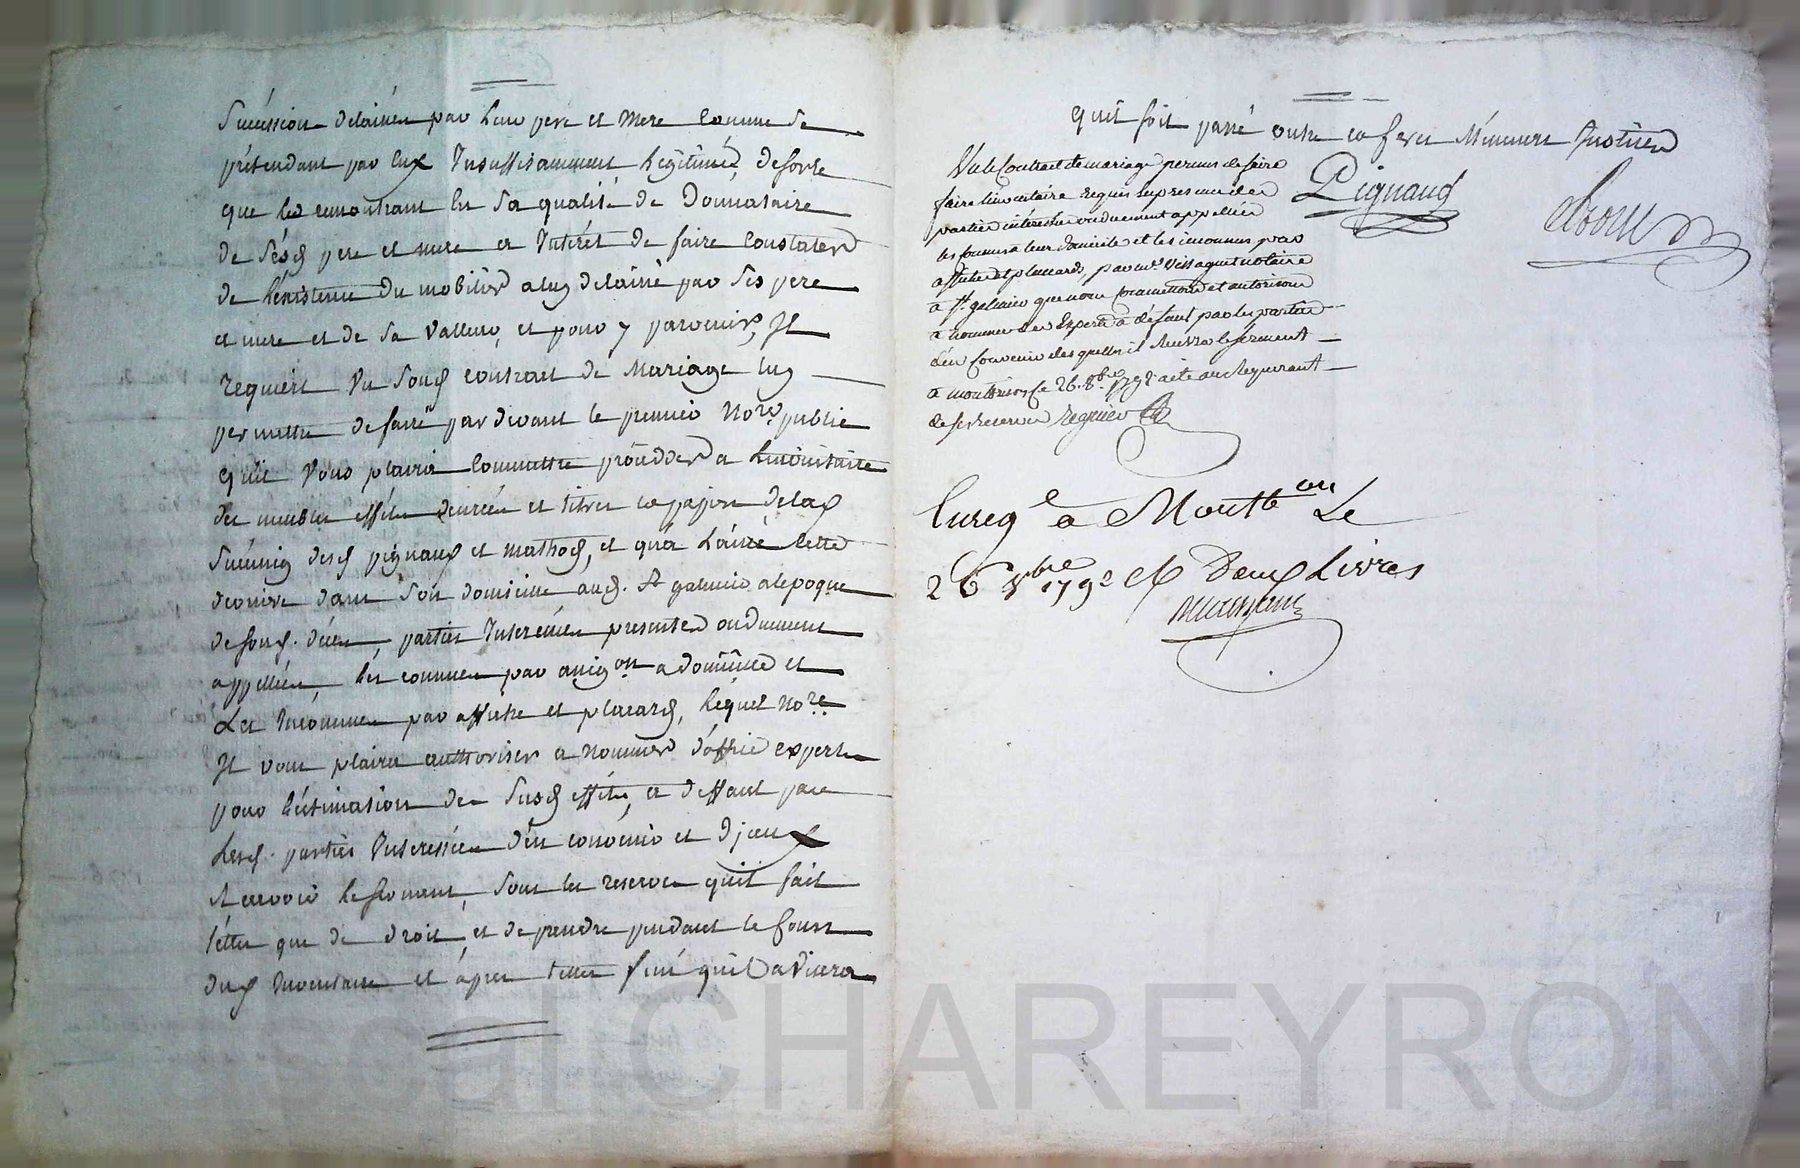 Succession delaissée par leur père et mere comme se
prétendant par eux Insuffisamment Legitimés, desorte
que le remontrant En Sa qualité de Donnataire
de Sesd pere et mere a Intérêt de faire Constater
de L'existence du mobilier a luy délaissé par Ses pere
et mere et de Sa Valleur, et pour y parvenir, Il
requiert Vu Sond contrat de Mariage luy
permettre de faire pardevant le premier Nore public
qu'il Vous plaira Commettre procedder a Linventaire
des meubles effets denrées et titres et papiers delad
Succession desd pignaud et mathod, et qui a Laissé cette
derniere dans Son domicille aud. St galmier alepoque
de Sond. décès, parties Interessées presentes ou duement
appellées, les connues par assignon a domicile et
Les Inconnues par affiche et placard, lequel Nore
Il vous plaira authoriser a nommer d'office experts
pour L'estimation des Susd effets, a deffaut par
Lesd. parties Interessées d'en convenir et d'jceux
Recevoir le Serment, Sous les reserves qu'il fait
telles que de droit, et de prendre pendant le Cours
dud Inventaire et aprés telles fins qu'il avisera
qu'il soit passé outre ce fesez Mémoire Justice
Pignaud
Vu le Contract de mariage permis de faire
faire linventaire requis en presence des
parties interéssées ou duement appellées
les connues a leur domicile et les inconnues par
affiche et placards, par me. Vissaguet notaire
à St galmier que nous Commettons et autorisons
à nommer des Experts à défaut par les parties
d'en Convenir desquels il recevra le serment
a montbrison, ce 26. 8bre 1792 acte au Requerant
de ses reserves regnier
Enregé a Montbon Le
26 8bre 1792 Deux Livres
Pascal CHAREYRON